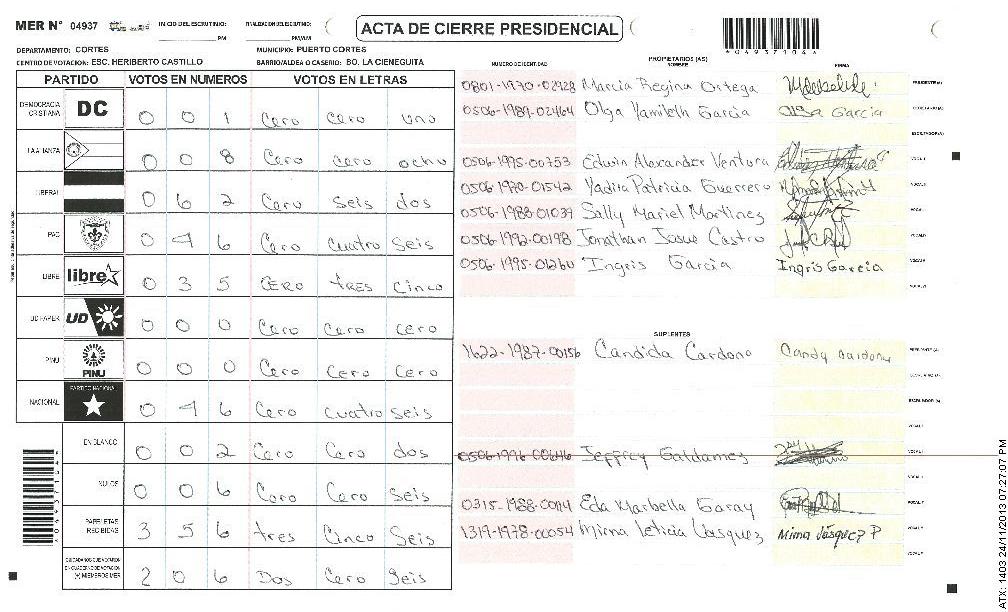 MER N° 04937 INICIO DEL ESCRUTINIO: PM FINALIZACION DEL ESCRUTINIO: PM/AM
ACTA DE CIERRE PRESIDENCIAL
DEPARTAMENTO: CORTES MUNICIPIO: PUERTO CORTES
CENTRO DE VOTACION: ESC. HERIBERTO CASTILLO BARRIO/ALDEA O CASERIO: BO. LA CIENEGUITA
PARTIDO VOTOS EN NUMEROS VOTOS EN LETRAS
DEMOCRACIA CRISTIANA DC 0 0 1 Cero cero uno
LA ALIANZA 0 0 8 Cero cero ocho
LIBERAL 0 6 2 Cero seis dos
PAC 0 4 6 Cero cuatro seis
LIBRE libre 0 3 5 CERO tres cinco
UD FAPER UD 0 0 0 Cero Cero cero
PINU PINU 0 0 0 Cero Cero Cero
NACIONAL PARTIDO NACIONAL 0 4 6 Cero cuatro seis
EN BLANCO 0 0 2 Cero Cero dos
NULOS 0 0 6 Cero Cero Seis
PAPELETAS RECIBIDAS 3 5 6 tres Cinco Seis
CIUDADANOS QUE VOTARON EN CUADERNO DE VOTACION (+) MIEMBROS MER 2 0 6 Dos Cero Seis
NUMERO DE IDENTIDAD PROPIETARIOS (AS) NOMBRE FIRMA
0801-1970-02928 Marcia Regina Ortega PRESIDENTE (A)
0506-1989-02464 Olga Yamileth Garcia Olga Garcia SECRETARIO (A)
ESCRUTADOR (A)
0506-1995-00753 Edwin Alexander Ventura VOCAL I
0506-1970-01542 Yadira Patricia Guerrero
0506-1988-01039 Sally Mariel Martinez
0506-1992-00198 Jonathan Josue Castro
0506-1995-01260 Ingris Garcia Ingris Garcia
SUPLENTES
1622-1987-00156 Candida Cardona Candy Cardona
0506-1996-00646 Jeffrey Galdamez
0315-1988-00114 Eda Marbella Garay
1319-1978-00054 Mirna Leticia Vasquez Mirna Vásquez P
*04937104*
ATX: 1403 24/11/2013 07:27:07 PM